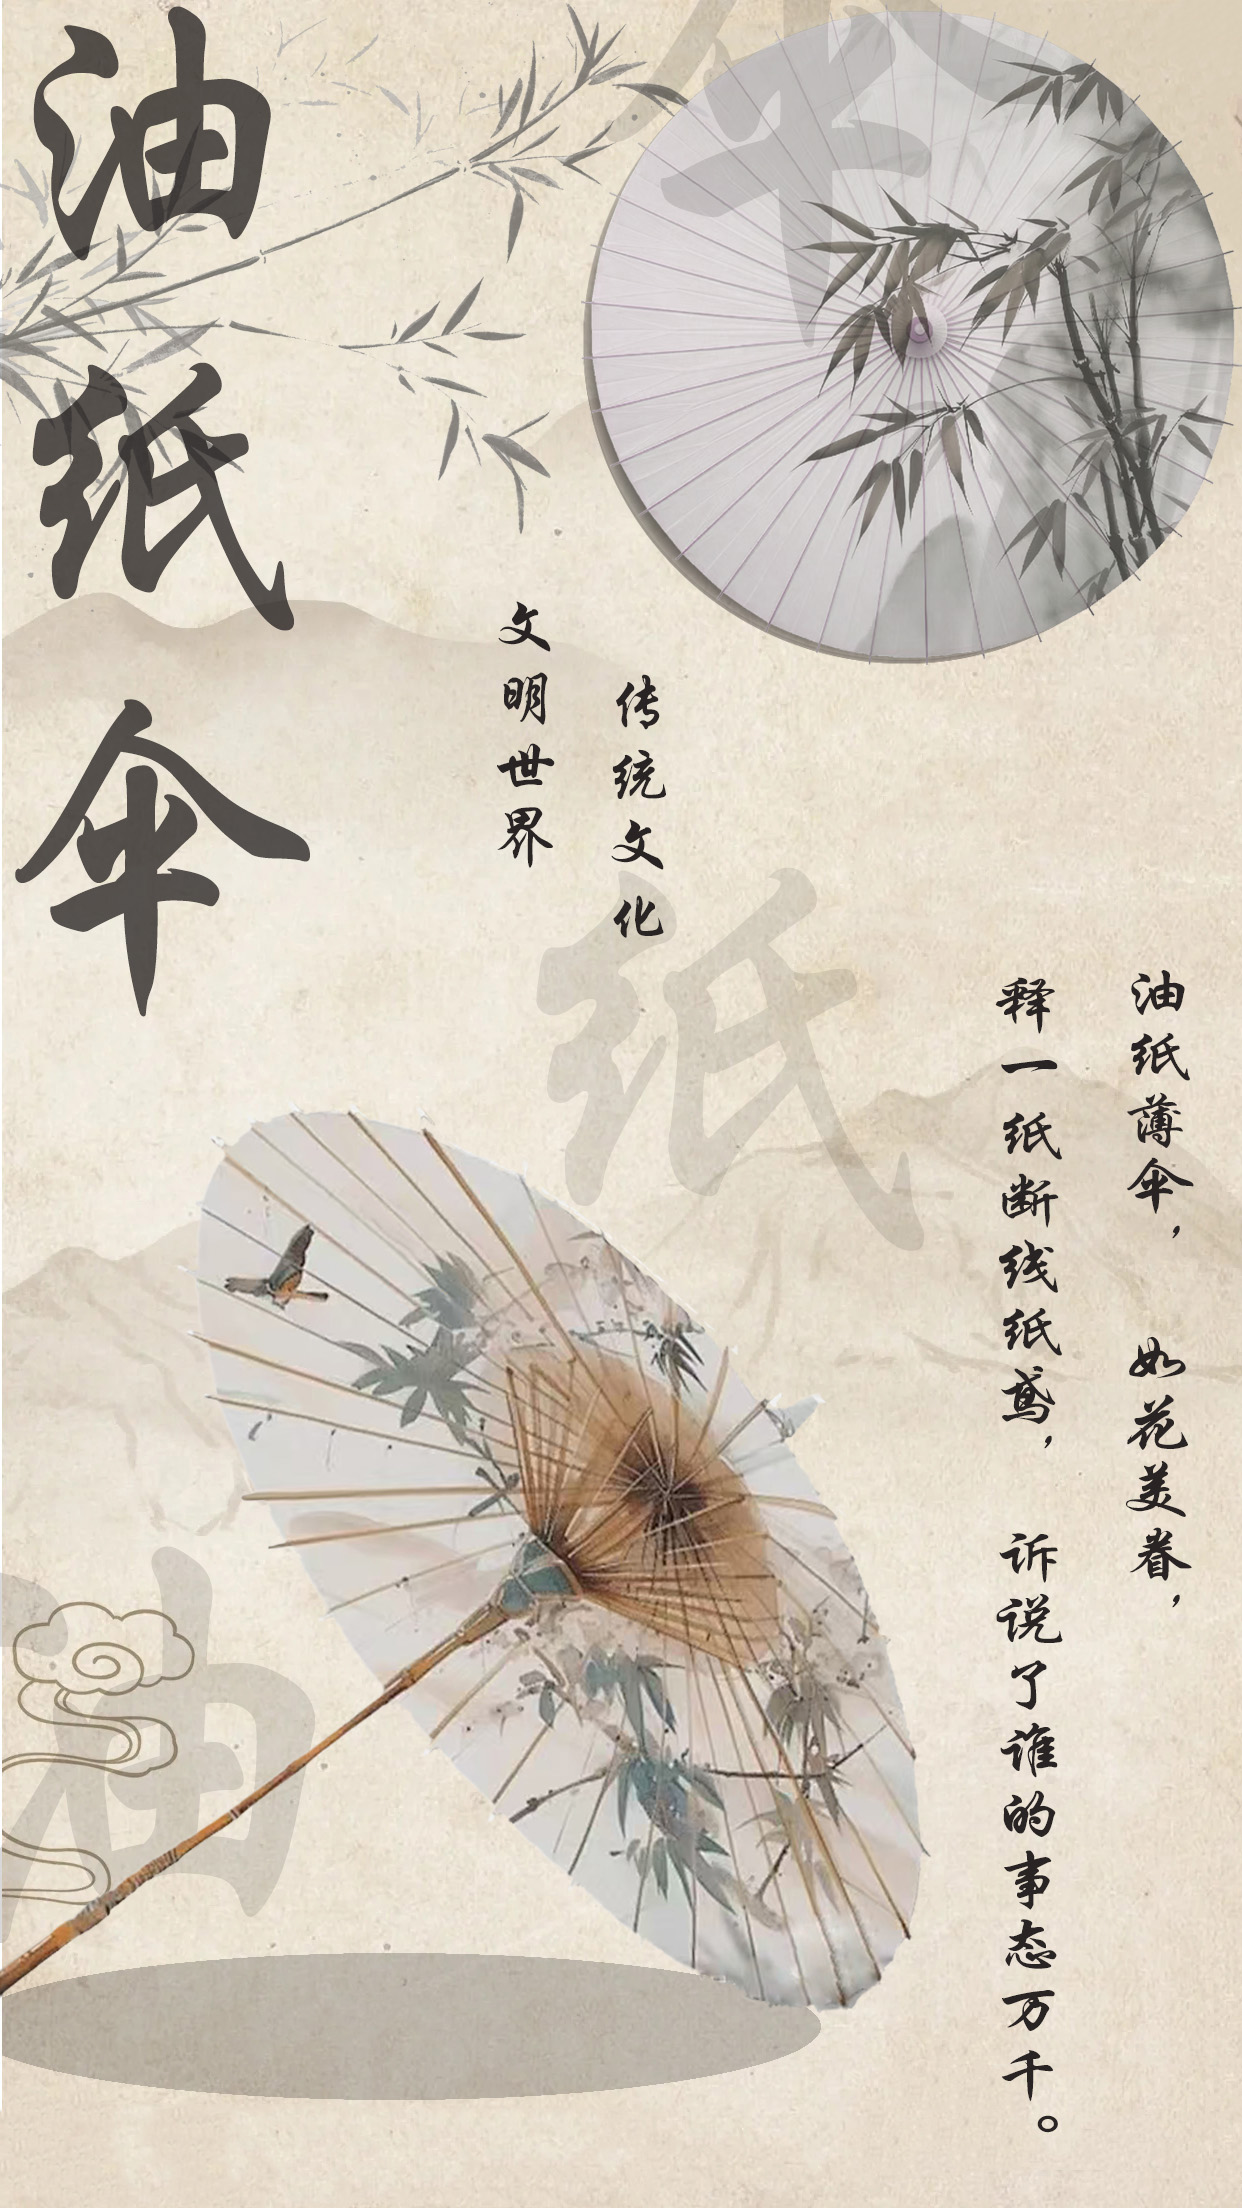 油纸伞
传统文化
文明世界
油纸薄伞，如花美眷，
释一纸断线纸鸢，诉说了谁的事态万千。
伞
纸
油